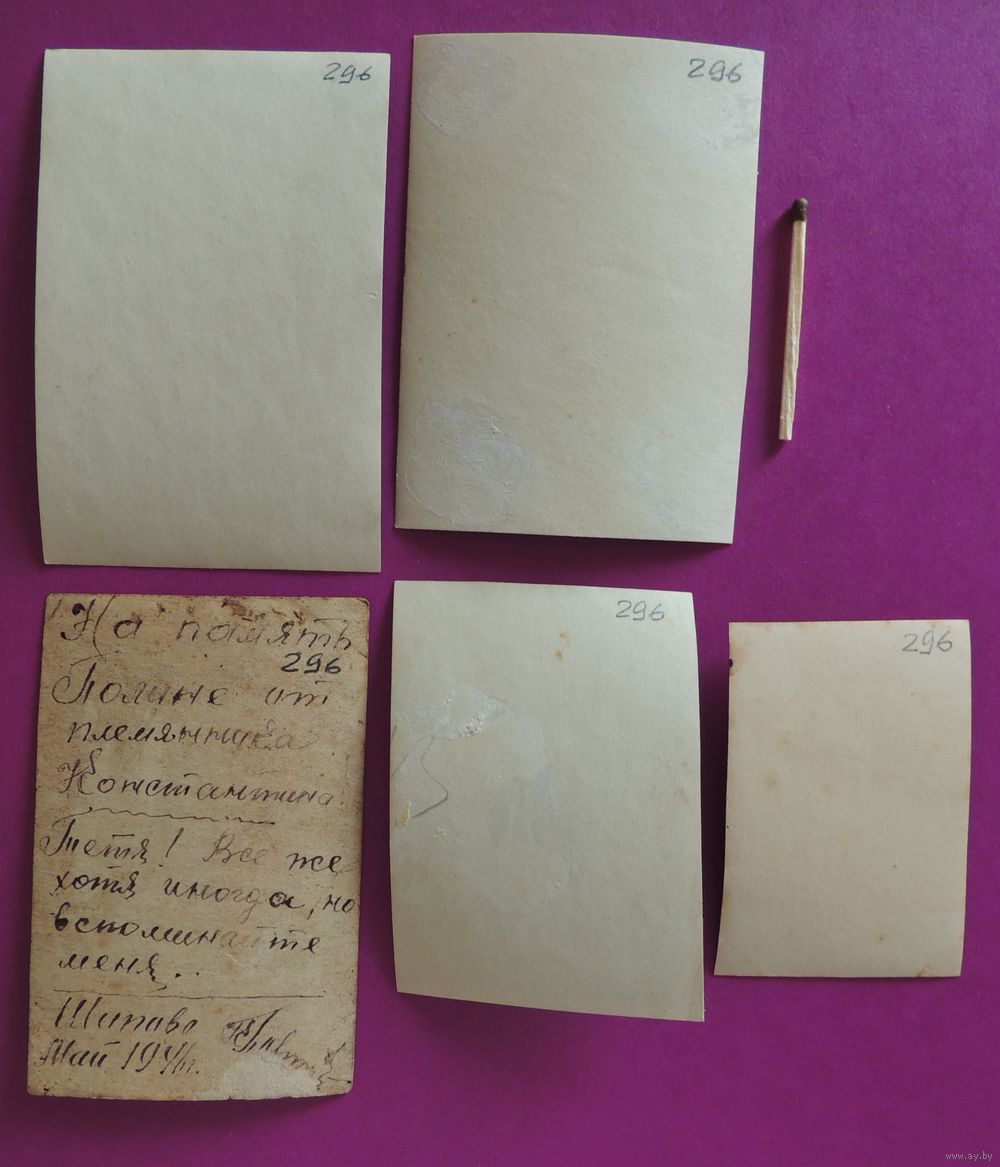 296
296
На память
296
Полине от
племянника
Константина.
Тетя! Все же
хотя иногда, но
вспоминайте
меня..
Шипово
Май 194 г.
296
296
www.ay.by